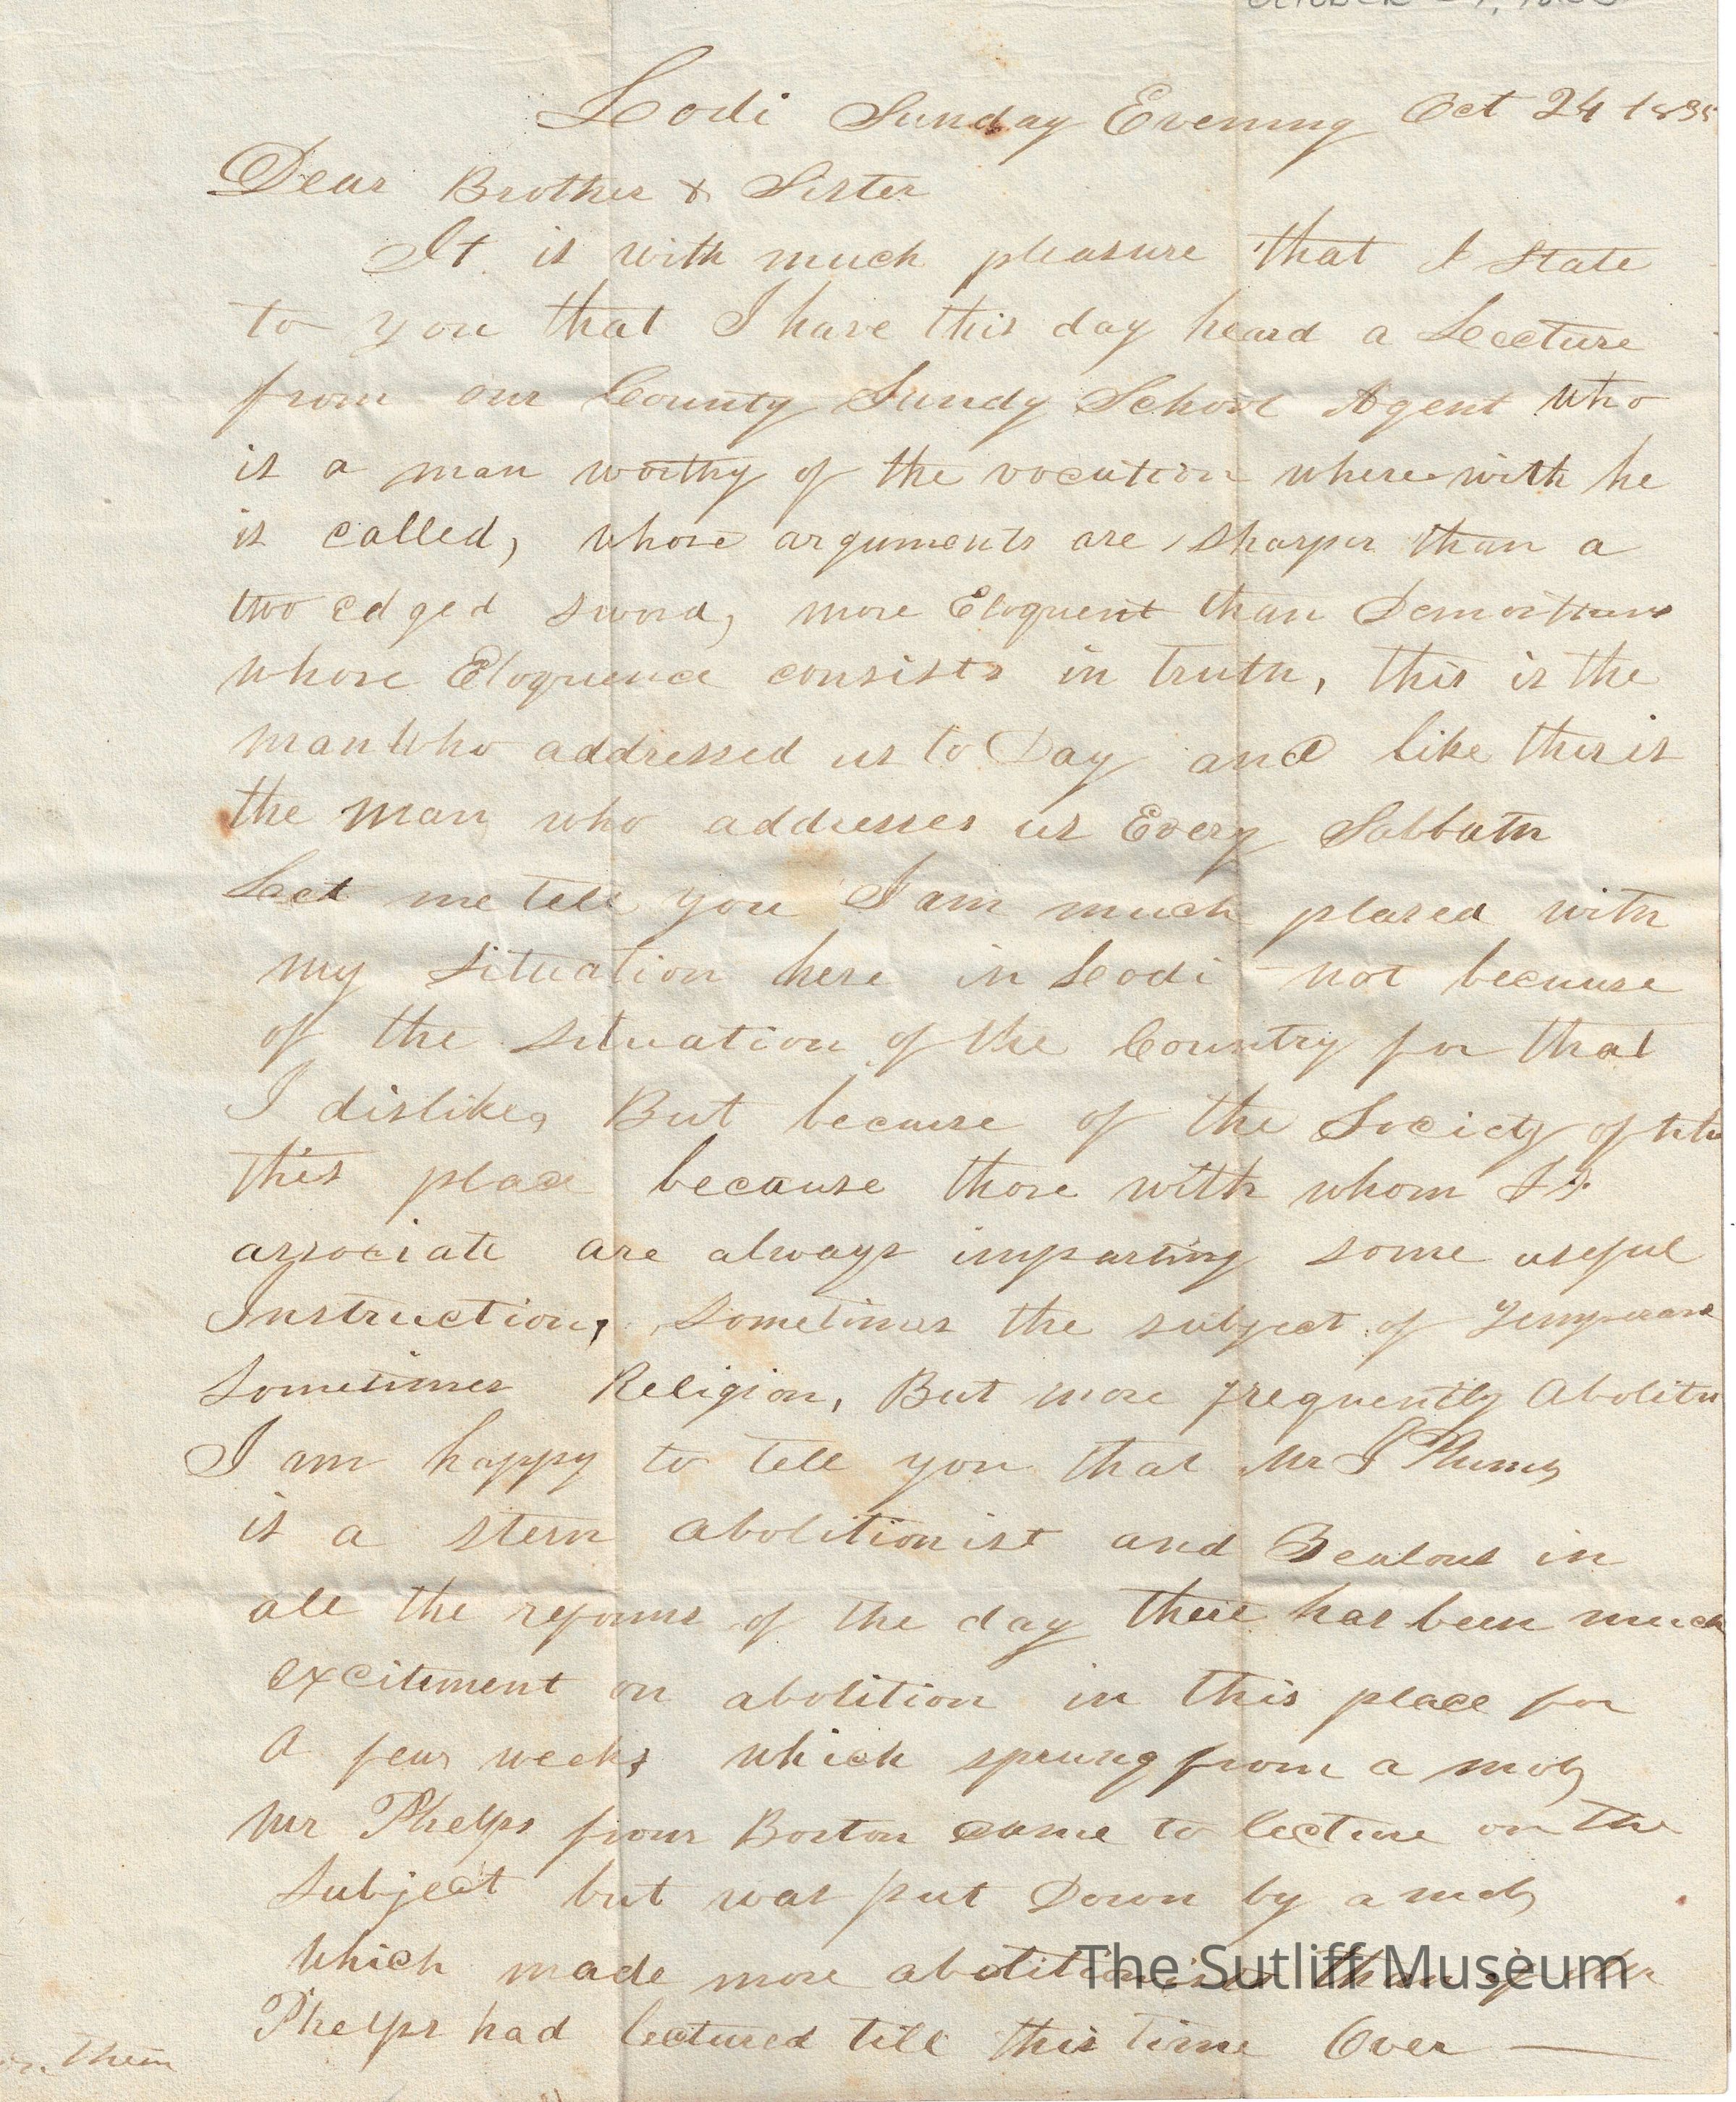 Lodi Sunday Evening Oct 24 183
Dear Brother & Sister
It is with much pleasure that I state
to you that I have this day heard a Lecture
from our County Sundy School Agent who
is a man worthy of the vocation where with he
is called, whose arguments are sharper than a
two edged sword, more Eloquent than
whose Eloquence consists in truth, this is the
man who addressed us to Day and like this is
the man who addresses us Every Sabbath
Let me tell you I am much plased with
my situation here in Lodi not because
of the situation of the Country for that
I dislike, But because of the Society of
this place because those with whom I
associate are always imparting some useful
Instruction, sometimes the subject of Temperance
sometimes Religion, But more frequently Abolitn
I am happy to tell you that Mr
is a stern abolitionist and Zealous in
all the reforms of the day there has been much
excitement on abolition in this place for
a few weeks which sprung from a mob
Mr Phelps from Boston came to lecture on the
subject but was put Down by a mob
which made more abolitionists than if Mr
Phelps had lectured till this time Over —
them
The Sutliff Museum